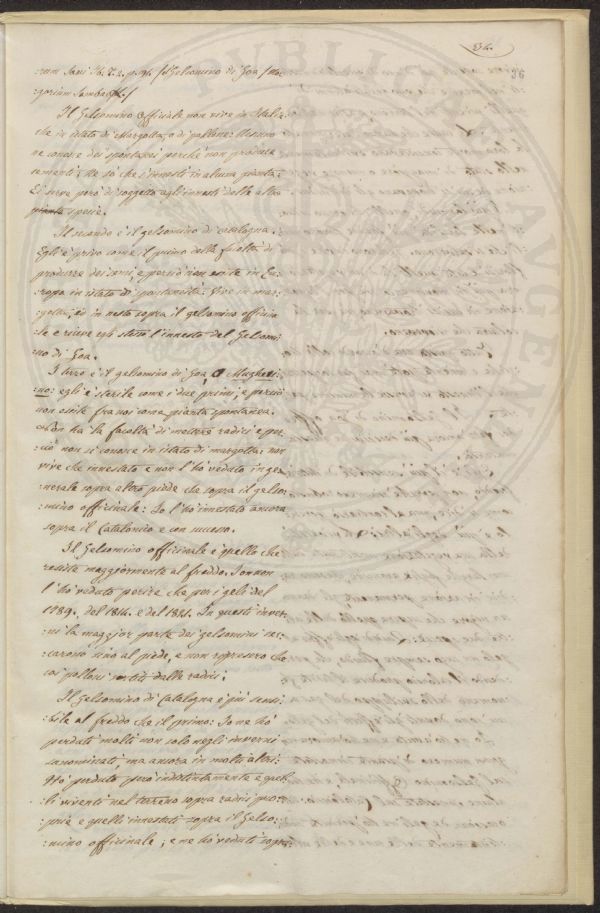 34.
36
:rum Sani Tb. T. 2. p. 96. (Gelsomino di Goa (Mo:
gorium Sambach./
Il Gelsomino Officinale non vive in Italia
che in istato di Margotta, o di pollone: Niuno
ne conosce dei spontanei perchè non produce
sementi; Nè sò che s'innesti in alcuna pianta.
Ei serve però di soggetto agli innesti delle altre
pianta specie.
Il secondo è il gelsomino di Catalogna.
Egli è privo come il primo della facoltà di
produrre dei semi, e perciò non esiste in Eu:
:ropa in istato di spontaneità. Vive in mar:
:gotta, ed in nesto sopra il gelsomino officina
:le e riceve egli stesso l'innesto del Gelsomi:
:no di Goa.
Il terzo è il gelsomino di Goa, o Mugheri:
:no: egli è sterile come i due primi, e perciò
non esiste fra noi come pianta spontanea.
Non ha la facoltà di mettere radici e per:
ciò non si conosce in istato di margotta: non
vive che innestato e non l'hò veduto in ge:
:nerale sopra altro piede che sopra il gelso:
:mino officinale: Io l'hò innestato ancora
sopra il Catalonico e con successo.
Il Gelsomino officinale è quello che
resiste maggiormente al freddo. Io non
l'hò veduto perire che per i geli del
1789. del 1814. e del 1821. In questi inver:
:ni la maggior parte dei gelsomini sec:
:carono sino al piede, e non ripresero che
coi polloni sortiti dalle radici.
Il Gelsomino di Catalogna è più sensi:
:bile al freddo che il primo: Io ne hò
perduti molti non solo negli inverni
sunnominati, ma ancora in molti altri:
Hò perduto però indistintamente e quel:
:li viventi nel terreno sopra radici pro:
:prie e quelli innestati sopra il Gelso:
:mino officinale; e ne hò veduti sopra: